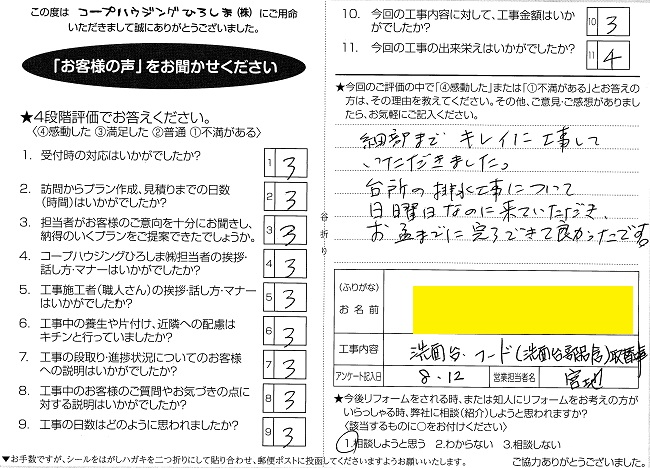 この度は コープハウジングひろしま(株) にご用命
いただきまして誠にありがとうございました。
「お客様の声」をお聞かせください
★4段階評価でお答えください。
〈④感動した ③満足した ②普通 ①不満がある〉
1. 受付時の対応はいかがでしたか?
1 3
2. 訪問からプラン作成、見積りまでの日数
(時間)はいかがでしたか?
2 3
3. 担当者がお客様のご意向を十分にお聞きし、
納得のいくプランをご提案できたでしょうか。
3 3
4. コープハウジングひろしま㈱担当者の挨拶・
話し方・マナーはいかがでしたか?
4 3
5. 工事施工者(職人さん)の挨拶・話し方・マナー
はいかがでしたか?
5 3
6. 工事中の養生や片付け、近隣への配慮は
キチンと行っていましたか?
6 3
7. 工事の段取り・進捗状況についてのお客様
への説明はいかがでしたか?
7 3
8. 工事中のお客様のご質問やお気づきの点に
対する説明はいかがでしたか?
8 3
9. 工事の日数はどのように思われましたか?
9 3
▼お手数ですが、シールをはがしハガキを二つ折りにして貼り合わせ、郵便ポストに投函してくださいますようお願いいたします。
谷折り
10. 今回の工事内容に対して、工事金額はいか
がでしたか?
10 3
11. 今回の工事の出来栄えはいかがでしたか?
11 4
★今回のご評価の中で「④感動した」または「①不満がある」とお答えの
方は、その理由を教えてください。その他、ご意見・ご感想がありまし
たら、お気軽にご記入ください。
細部まで キレイに工事して
いただきました。
台所の排水工事について
日曜日なのに来ていただき、
お盆までに完了できて良かったです
(ふりがな)
お名前
工事内容
洗面台・フード(洗面台部品含)取替事
アンケート記入日
8.12
営業担当者名
宮地
★今後リフォームをされる時、または知人にリフォームをお考えの方が
いらっしゃる時、弊社に相談(紹介)しようと思われますか?
〈該当するものに○をお付けください〉
1.相談しようと思う 2.わからない 3.相談しない
ご協力ありがとうございました。